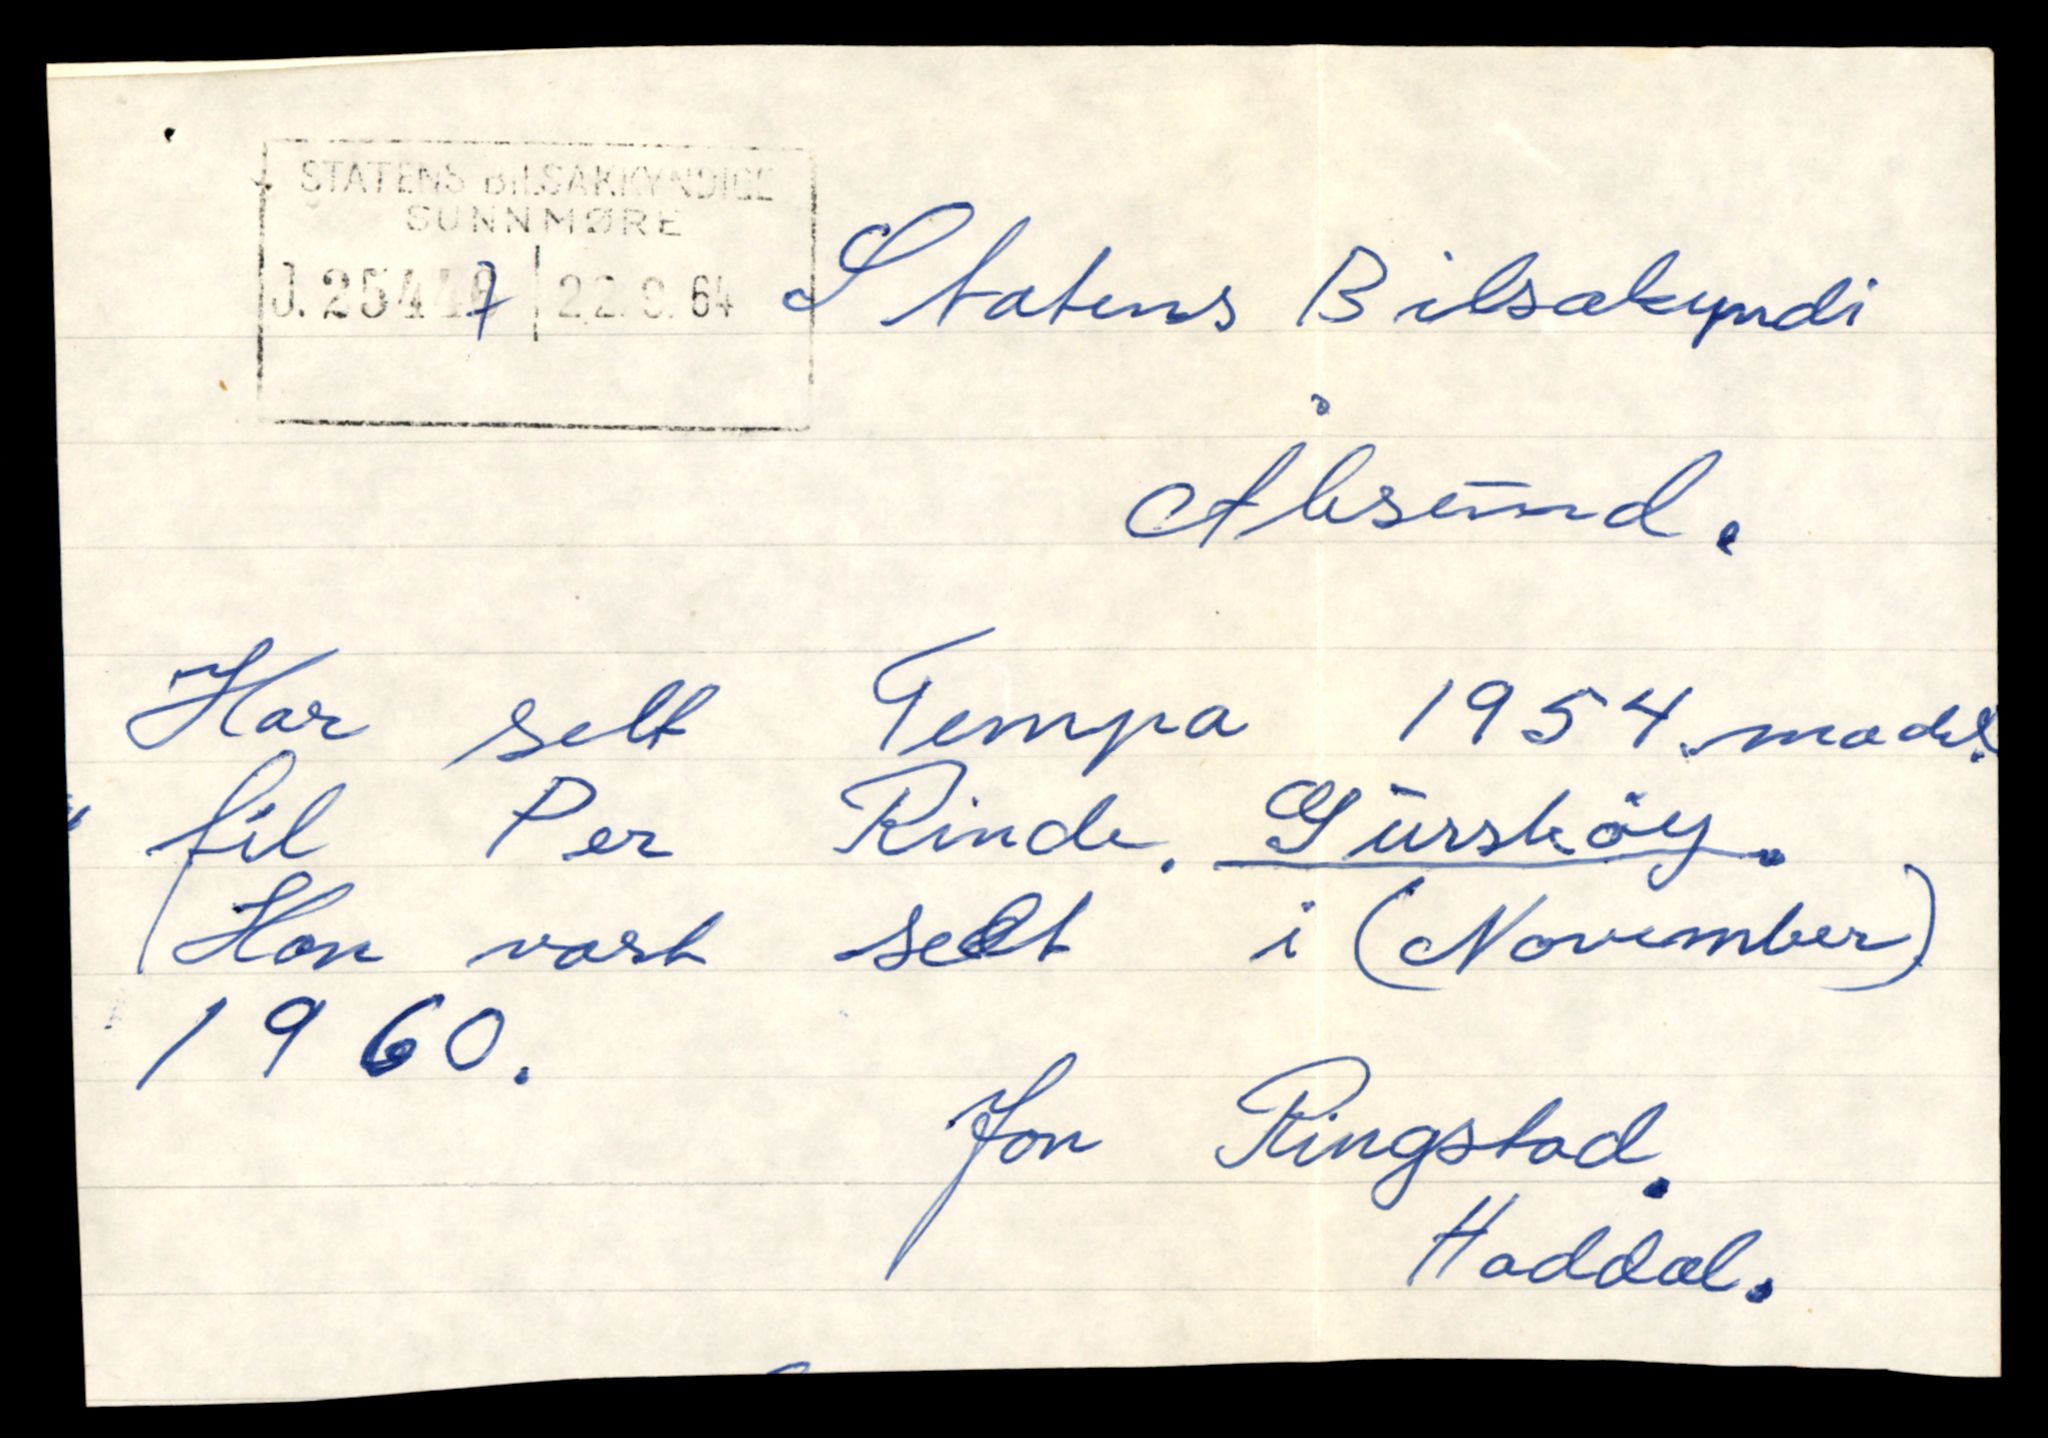 STATENS BILSAKKYNDIGE
SUNNMØRE
J. 25447 22. 9. 64
Statens Bilsakyndi
Ålesund.
Har selt Tempa 1954. model.
til Per Rinde. Gurskøy.
Han vart selt i (November)
1960.
Jon Ringstad.
Haddal.